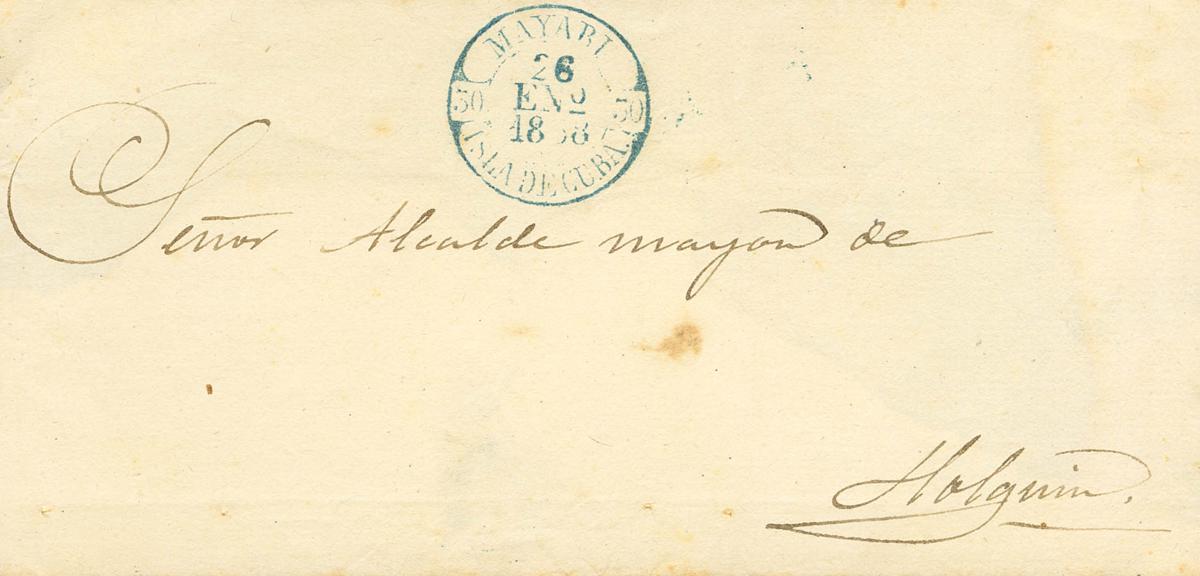 MAYARI
26
ENº
50 50
18 58
ISLA DE CUBA.
Señor Alcalde mayor de
Holguin.